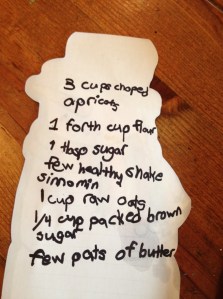 3 cups choped
apricots
1 forth cup flour
1 tbsp sugar
few healthy shake
sinnomin
1 cup raw oats
1/4 cup packed brown
sugar
few pats of butter